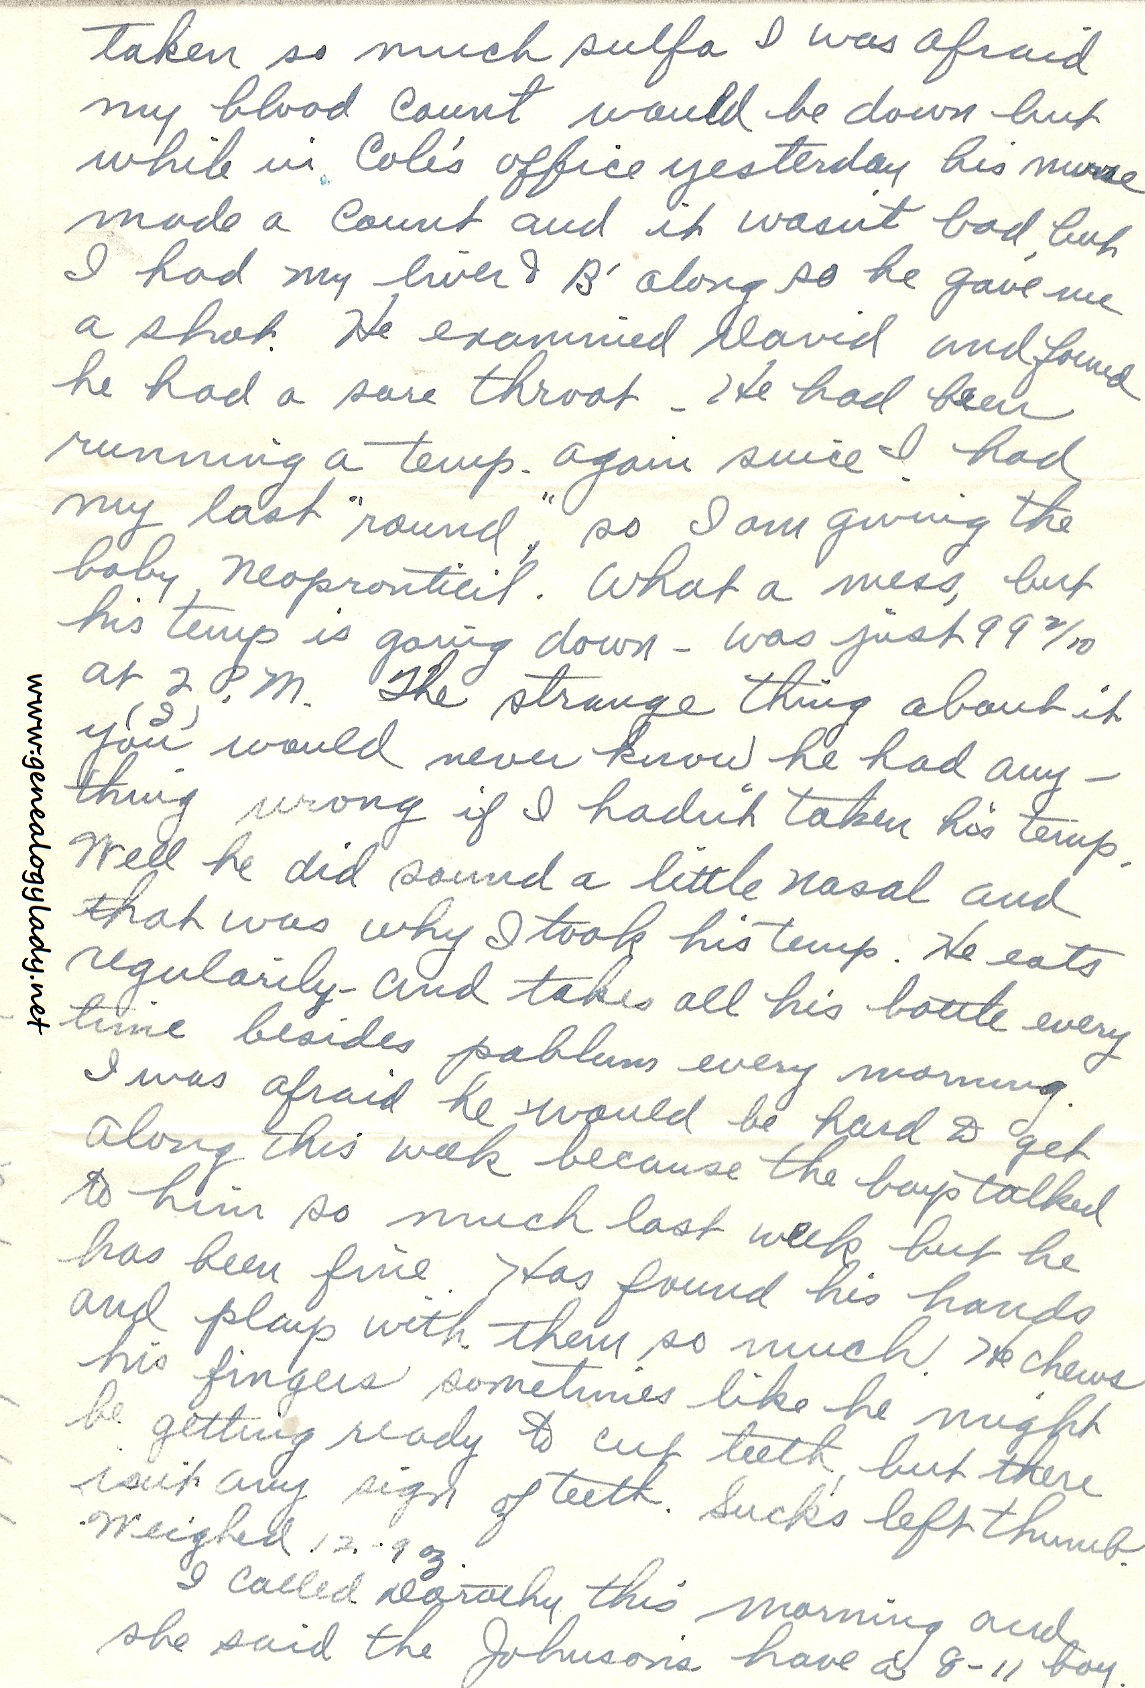 taken so much sulfa I was afraid
my blood count would be down but
while in Cole's office yesterday his nurse
made a count and it wasn't bad, but
I had my liver & B' along so he gave me
a shot. He examined David and found
he had a sore throat - He had been
running a temp. again since I had
my last "round," so I am giving the
baby Neopronticil. What a mess, but
his temp is going down - was just 99 2/10
at 2 P.M. The strange thing about it
(2)
you would never know he had any-
thing wrong if I hadn't taken his temp.
Well he did sound a little nasal and
that was why I took his temp. He eats
regularily - and takes all his bottle every
time besides pablum every morning.
I was afraid he would be hard to get
along this week because the boys talked
to him so much last week but he
has been fine. Has found his hands
and plays with them so much. He chews
his fingers sometimes like he might
be getting ready to cut teeth, but there
isn't any sign of teeth. Sucks left thumb.
Weighed 12-9 oz.
I called Dorothy this morning and
she said the Johnsons have a 8-11 boy.
www.genealogylady.net